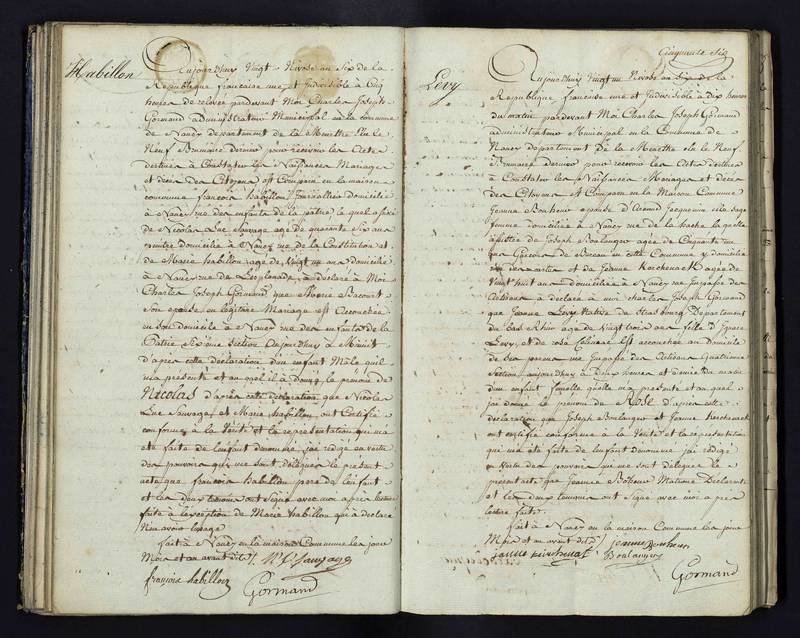 Habillon
Aujourdhuy Vingt Nivose an Six de la
Republique francaise une et Indivisible à Cinq
heures de relevée pardevant Moi Charles Joseph
Gormand administrateur Municipal de la commune
de Nancy departement de la Meurthe Elu le
Neuf Brumaire dernier pour recevoir les Actes
destinés à Constater les Naissances Mariages
et décès des Citoyens est Comparu en la maison
commune françois habillon Journallier domicilié
à Nancy rue des enfants de la patrie lequel assisté
de Nicolas Luc Sauvage agé de quarante Six ans
domicilié à Nancy rue de la Constitution et
de Marie habillon agée de Vingt un ans domiciliée
à Nancy rue de Lesplanade, à déclaré à Moi
Charles Joseph Gormand que Marie Bacourt
Son épouse en légitime Mariage est Accouchée
en son domicile à Nancy rue des enfants de la
Patrie Sixieme Section aujourdhuy à Minuit
d'après cette déclaration d'un enfant Male quil
m'a présenté et auquel il à donné le prénom de
Nicolas d'après cette déclaration que Nicolas
Luc Sauvage et Marie habillon ont Certifié
conforme à la Verité et la représentation qui m'a
eté faite de l'enfant denommé, j'ai rédigé en vertu
des pouvoirs qui me sont délégués le présent
acte que francois habillon pere de l'enfant
et les deux temoins ont signé avec moi après lecture
faite à l'exception de Marie habillon qui à déclaré
Non avoir lusage
fait à Nancy en la maison Commune les jour
Mois et an avant dits N L Sauvage
françois habillon
Gormand
Cinquante Six
Levy
Aujourdhuy Vingt un Nivose an Six de la
Republique francaise une et Indivisible à Dix heures
du matin pardevant Moi Charles Joseph Gormand
administrateur Municipal en la Commune de
Nancy Departement de la Meurthe elu le Neuf
Brumaire dernier pour recevoir les Actes destinés
à Constater les Naissances Mariages et décès
des Citoyens est Comparu en la Maison Commune
Jeanne Bonheur epouse d'Arnoud Jacquemin elle sage
femme domiciliée à Nancy rue de la hache laquelle
assistée de Joseph Boulanger agé de Cinquante un
ans Garcon de Bureau en cette Commune y domicilié
et de Jeanne Kerchenack agée de
Vingt huit ans domiciliée à Nancy rue
Artisans à déclaré à moi charles Joseph Gormand
que Jeanne Levy Native de Strasbourg Departement
du bas Rhin agée de Vingt trois ans fille d'
Levy, et de rosa est accouchée au Domicile
de Ses parens rue des Artisans Quatrieme
Section aujourdhuy à Deux heures et demie du matin
d'un enfant femelle quelle m'a présenté et auquel
j'ai donné le prénom de ROSE d'après cette
déclaration que Joseph Boulanger et Jeanne Kerchenack
ont certifié conforme à la Verité et la représentation
qui m'a été faite de lenfant denommé j'ai rédigé
en Vertu des pouvoirs qui me sont délégués le
présent acte que Jeanne Bonheur Matrone Declarante
et les deux temoins ont signé avec moi après
lecture faite
fait à Nancy en la maison Commune les jour
Mois et an avant dits jeanne Bonheur
Boulanger
Gormand